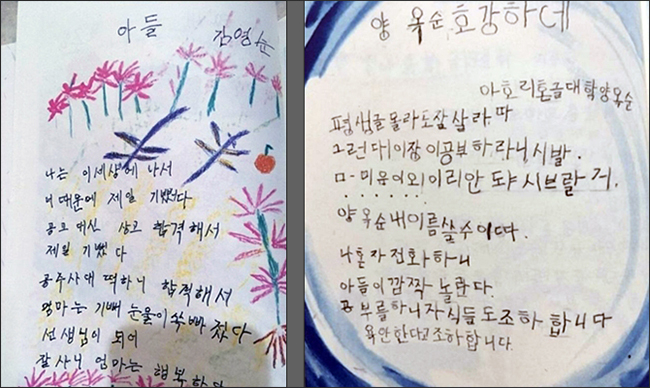 아들 김영순
나는 이세상에 나서
너때문에 제일 기뻤다
공고 대신 상고 합격해서
제일 기뻤다
공주사대 떡하니 합격해서
엄마는 기뻐 눈물이 쏙 빠졌다
선생님이 되어
잘사니 엄마는 행복하다
양 옥순 호강하네
아흐리흔글대학양옥순
평생글몰라도잘살라따
그런대이장이공부하라니시발.
마-미웁여외이리안 돠 시브랄 거.
양옥순내이름쓸수이따.
나혼자전화하니
아들이깜작 놀란다.
공부를하니자식들도조하 합니다
욕안한다고조하합니다